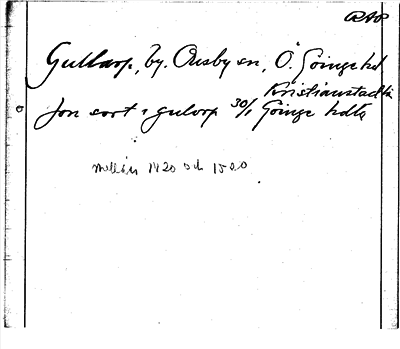 RAP
Gullarp, by. Ousby sn, Ö. Göinge hd
Kristianstads län
Jon sort i gulorp 30/1 Göinge hdt
mellan 1420 och 1500